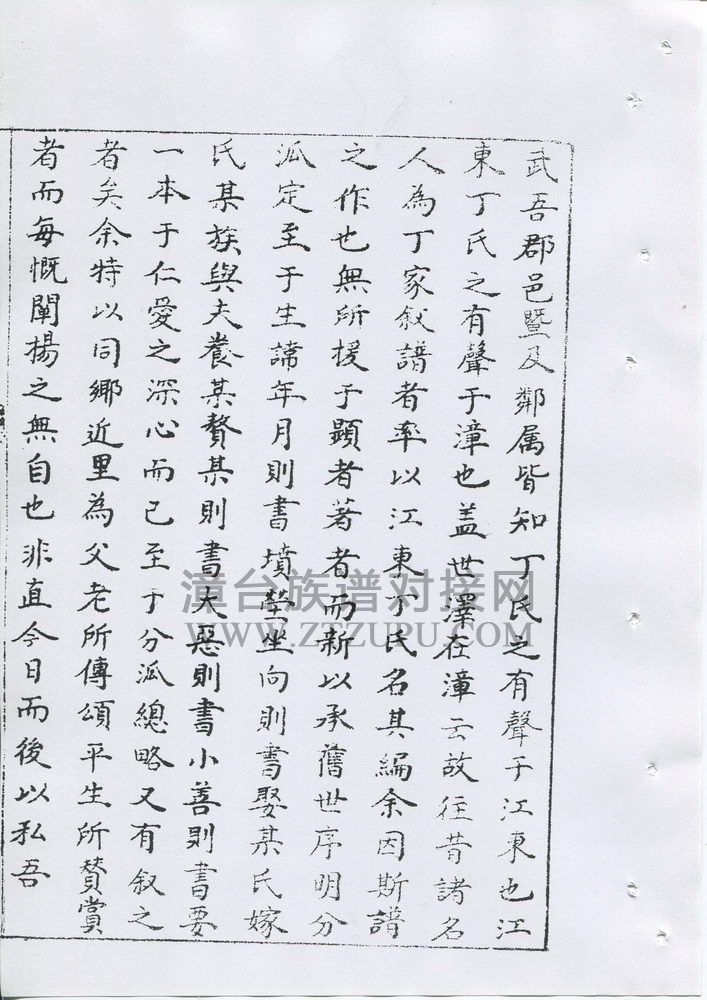 武吾郡邑暨及鄰属皆知丁氏之有聲于江東也江
東丁氏之有聲于漳也盖世澤在漳云故往昔諸名
人為丁家叙譜者率以江東丁氏名其編余因斯譜
之作也無所援于顯者著者而新以承舊世序明分
派定至于生諱年月則書墳塋坐向則書娶某氏嫁
氏某族與夫養某贅某則書大惡則書小善則書要
一本于仁愛之深心而已至于分派總略又有叙之
者矣余特以同鄉近里為父老所傳頌平生所賛賞
者而每慨闡揚之無自也非直今日而後以私吾
漳台族谱对接网
WWW.ZTZUPU.COM